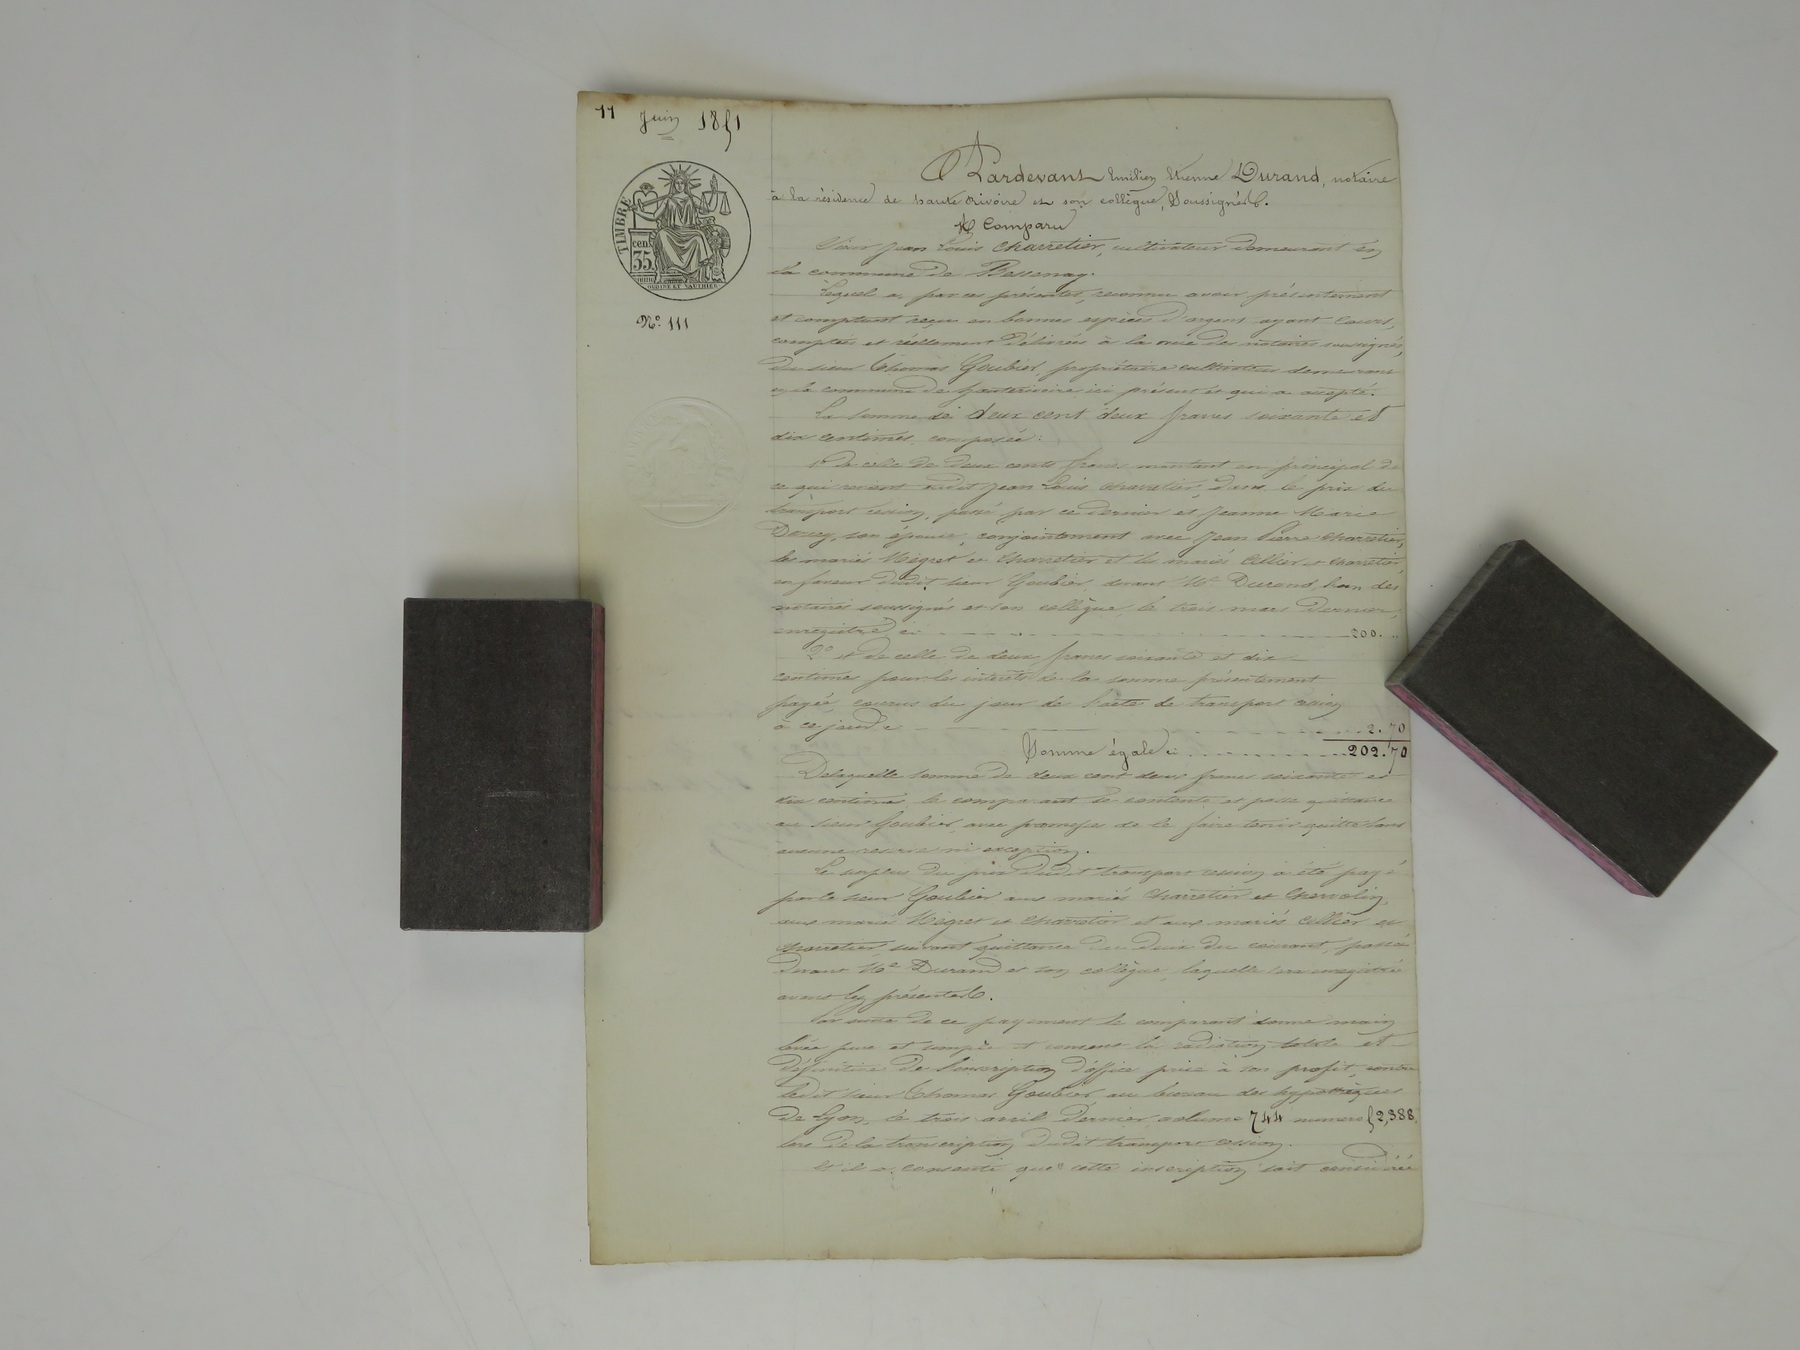 11 Juin 1851
TIMBRE
cen.
35
N.º 111
Pardevant Emilien Etienne Durand, notaire
à la résidence de haute Rivoire et son collègue, Soussignés.
A Comparu
Sieur Jean Louis Charretier, cultivateur demeurant en
la commune de Bessenay.
Lequel a, par ces présentes, reconnu avoir présentement
et comptant reçu en bonnes espèces d'argent ayant cours,
comptées et réellement délivrées à la vue des notaires soussignés,
du sieur Thomas Goubier, propriétaire cultivateur demeurant
en la commune de hauterivoire, ici présent et qui a accepté.
La Somme de deux cent deux francs soixante et
dix centimes, composée :
1º de celle de deux cents francs montant en principal de
ce qui revient audit Jean Louis Charretier, dans le prix du
transport cession, passé par ce dernier et Jeanne Marie
son épouse, conjointement avec Jean Pierre Charretier,
les mariés Mégret et Charretier et les mariés Cellier et Charretier,
en faveur dudit sieur Goubier, devant Me Durand, l'un des
notaires soussignés et son collègue, le trois mars dernier,
enregistré, ci 200. "
2º et de celle de deux francs soixante et dix
centimes pour les intérêts de la somme présentement
payée, courus du jour de l'acte de transport cession
à ce jour ci 2.70
Somme égale ci 202.70
De laquelle somme de deux cent deux francs soixante et
dix centimes, le comparant se contente et passe quittance
au sieur Goubier, avec promesse de le faire tenir quitte sans
aucune réserve ni exception.
Le surplus du prix dudit transport cession a été payé
par le sieur Goubier aux mariés Charretier et
aux mariés Mégret et Charretier et aux mariés Cellier et
Charretier, suivant quittance du deux du courant, passée
devant Me Durand et son collègue, laquelle sera enregistrée
avant les présentes.
Par suite de ce payement le comparant donne main
levée pure et simple et consent la radiation totale et
définitive de l'inscription d'office prise à son profit, contre
ledit sieur Thomas Goubier, au bureau des hypothèques
de Lyon, le trois avril dernier, volume 744 numéro 52,388,
lors de la transcription dudit transport cession.
Et il a consenti que cette inscription soit considérée